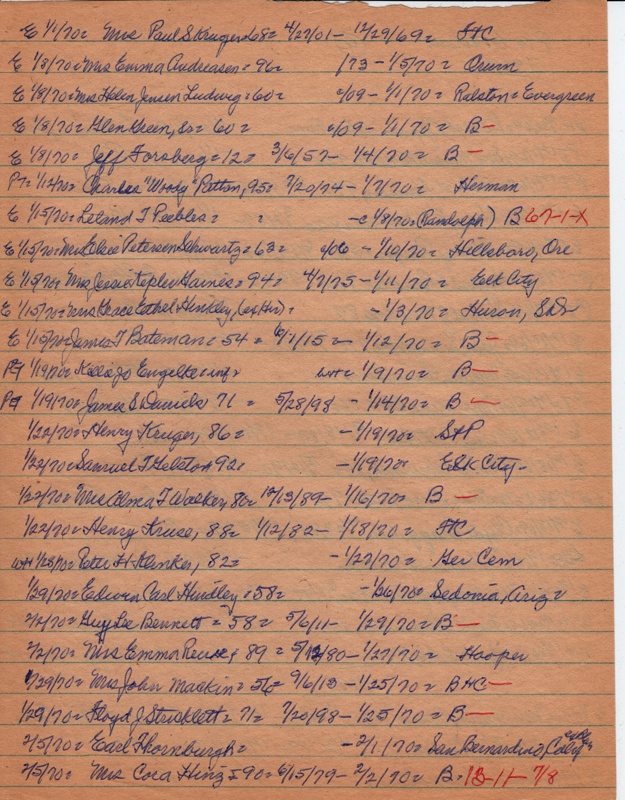 E 1/1/70= Mrs Paul S Kruger=68= 4/27/01- 12/29/69= HC
E 1/8/70=Mrs Emma Andreasen= 96= /73 - 1/5/70= Orum
E 1/8/70=Mrs Helen Jensen Ludwig=60= c/09 - 1/1/70= Ralston=Evergreen
E 1/8/70= Glen Green, Sr= 60= c/09 - 1/1/70= B-
E 1/8/70= Jeff Forsberg=12= 3/6/57- 1/4/70= B-
PT=1/12/70= Charles "Woody" Patton, 95= 7/20/74- 1/7/70= Herman
E 1/15/70=Leland T Peebles= = -c 1/8/70=(Randolph) B 67-1-X
E 1/15/70=Mrs Elsie Petersen Schwartz=63= c/06 - 1/10/70= Hillsboro, Ore
E 1/15/70= Mrs Jessie Kepler Gaines= 94= 4/7/75-1/11/70= Elk City
E 1/15/70=Mrs Grace Ethel Hinkley, = -1/3/70= Huron, SD
E 1/15/70=James T Bateman= 54= 6/1/15- 1/12/70= B-
PT 1/19/70= Engelke=inf= 1/9/70= B-
PT 1/19/70= James S Daniels 71= 5/28/98 - 1/14/70= B-
1/22/70=Henry Kruger, 86= -1/19/70= S&P
1/22/70=Samuel T 92= -1/19/70= Elk City-
1/22/70=Mrs Alma T Walker, 80= 12/13/89- 1/16/70= B-
1/22/70=Henry Kruse, 88= 1/12/82- 1/18/70= HC
1/28/70= Peter H Klenker, 82= -1/27/70= Ger Cem
1/29/70=Edwin Carl Hindley=58= -1/26/70= Sedonia, Ariz=
2/2/70= Guy Lee Bennett= 58= 5/6/11- 1/29/70= B-
2/2/70= Mrs Emma Reuse, 89= 5/12/80- 1/27/70= Hooper
1/29/70= Mrs John Mackin= 56= 9/6/13- 1/25/70= BHC-
1/29/70= Floyd J Stricklett= 71= 7/20/98- 1/25/70= B-
2/5/70= Earl Thornburgh= -2/1/70= San Bernardino, Calif
2/5/70= Mrs Cora Hinz=90= 6/15/79- 2/2/70= B- 13-11- 7/8